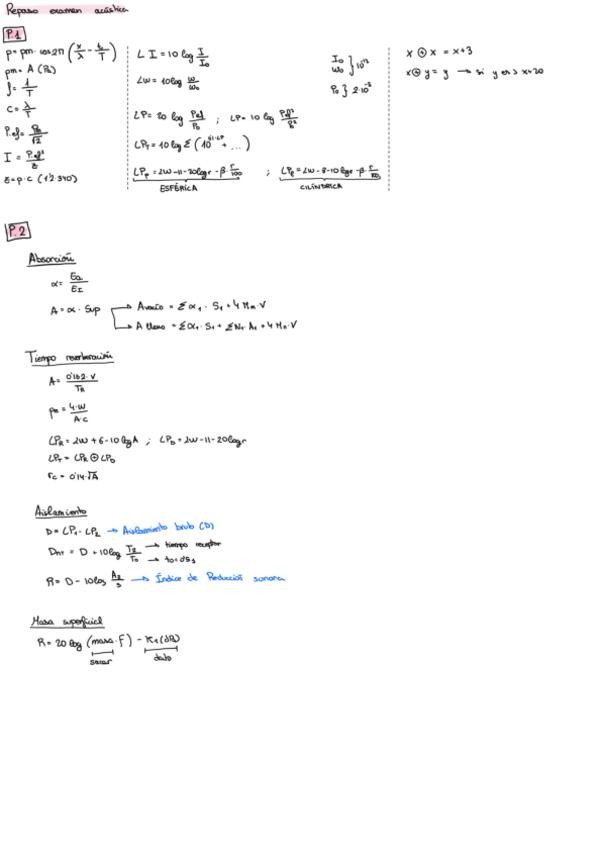 Repaso examen acústica
P.1
p = pm · cos 2π (x/λ - t/T)
pm = A (Pa)
f = 1/T
c = λ/T
Pef = Po/√2
I = Pef²/z
z = ρ · c (1'2·340)
LI = 10 log I/Io
LW = 10 log W/Wo
LP = 20 log Pef/Po ; LP = 10 log Pef²/Po²
LPT = 10 log Σ (10^0'1·LP + ...)
LPP = LW - 11 - 20 log r - β · r/100 ; LPP = LW - 8 - 10 log r - β · r/100
ESFÉRICA CILÍNDRICA
Io
Wo } 10⁻¹²
Po } 2·10⁻⁵
x ⊕ x = x + 3
x ⊕ y = y → si y es > x + 20
P.2
Absorción
α = Ea/EI
A = α · Sup
A vacío = Σ α₁ · S₁ + 4 Mn · V
A lleno = Σ α₁ · S₁ + Σ N₁ · A₁ + 4 Mn · V
Tiempo reverberación
A = 0'162 · V / TR
= 4·W / A·C
LPR = LW + 6 - 10 log A ; LPD = LW - 11 - 20 log r
LPT = LPR ⊕ LPD
rc = 0'14 · √A
Aislamiento
D = LP₁ - LP₂ → Aislamiento bruto (D)
DnT = D + 10 log T₂/To → tiempo receptor
→ to = 0'5 s
R = D - 10 log A₂/S → Índice de Reducción sonora
Masa superficial
R = 20 log (masa · f) - K₁ (dB)
sacar dato